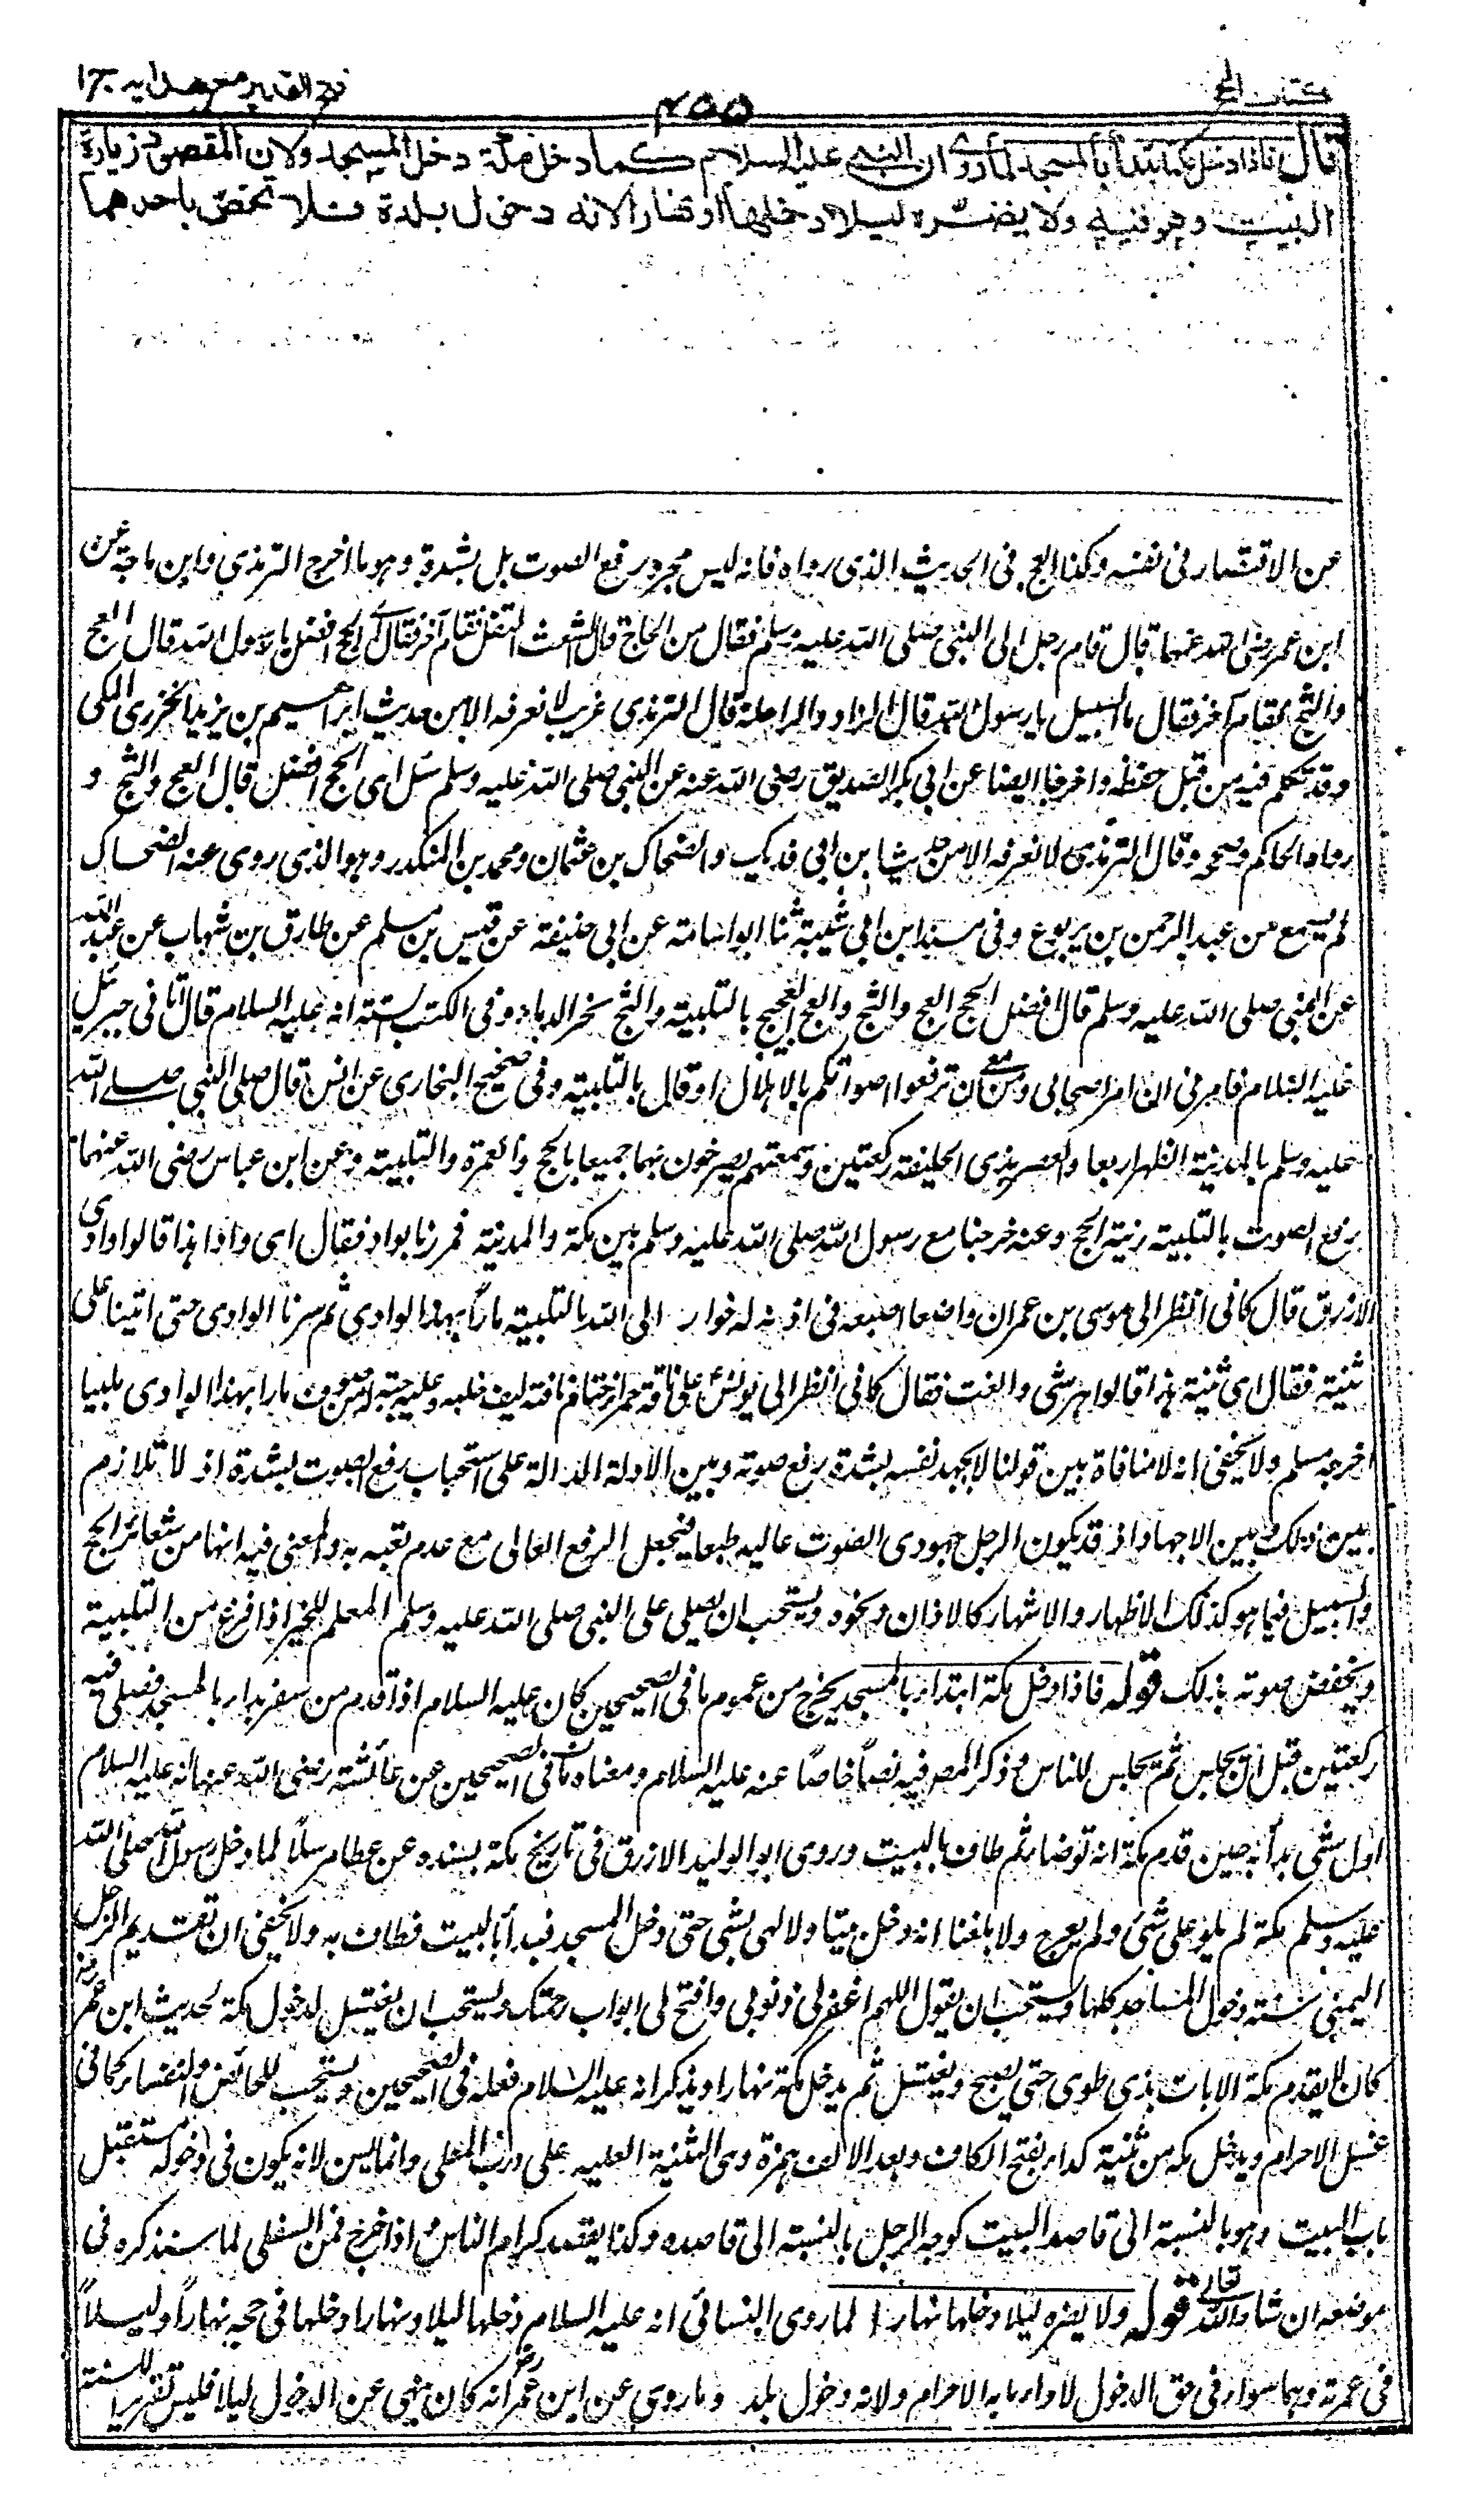 كتاب الحج
٤٥٥
فتح القدير مع هدايه ج١
قال فاذا دخل مكة ابتدأ بالمسجد لما روى ان النبي عليه السلام كما دخل مكة دخل المسجد ولان المقصود زيارة
البيت وهو فيه ولا يضره ليلا دخلها او نهارا لانه دخول بلدة فلا تختص باحدهما
من الاقتصار فى نفسه وكذا العج فى الحديث الذى رواه فانه ليس مجرد رفع الصوت بل بشدة وهو ما اخرج الترمذي وابن ماجة عن
ابن عمر رضى الله عنهما قال قام رجل الى النبى صلى الله عليه وسلم فقال من الحاج قال الشعث التفل فقام آخر فقال اى الحج افضل يا رسول الله قال العج
والثج فقام آخر فقال ما السبيل يا رسول الله قال الزاد والراحلة قال الترمذى غريب لا نعرفه الا من حديث ابراهيم بن يزيد الخوزى المكى
وقد تكلم فيه من قبل حفظه واخرجا ايضا عن ابى بكر الصديق رضى الله عنه عن النبى صلى الله عليه وسلم سئل اى الحج افضل قال العج والثج و
رواه الحاكم وصححه وقال الترمذى لا نعرفه الا من حديث ابن ابى فديك والضحاك بن عثمان ومحمد بن المنكدر وهو الذى روى عنه الضحاك
لم يسمع من عبد الرحمن بن يربوع وفى مسند ابن ابى شيبة ثنا ابو اسامة عن ابى حنيفة عن قيس بن مسلم عن طارق بن شهاب عن عبد الله
عن النبى صلى الله عليه وسلم قال افضل الحج العج والثج والعج العجيج بالتلبية والثج نحر الدماء وفى الكتب الستة انه عليه السلام قال اتانى جبرئيل
عليه السلام فامرنى ان امر اصحابى ومن معى ان ترفعوا اصواتكم بالاهلال او قال بالتلبية وفى صحيح البخارى عن انس قال صلى النبى صلى الله
عليه وسلم بالمدينة الظهر اربعا والعصر بذى الحليفة ركعتين وسمعتهم يصرخون بهما جميعا بالحج والعمرة والتلبية وعن ابن عباس رضى الله عنهما
رفع الصوت بالتلبية زينة الحج وعنه خرجنا مع رسول الله صلى الله عليه وسلم بين مكة والمدينة فمررنا بواد فقال اى واد هذا قالوا وادى
الازرق قال كانى انظر الى موسى بن عمران واضعا اصبعه فى اذنه له خوار الى الله بالتلبية مارا بهذا الوادى ثم سرنا الوادى حتى اتينا على
ثنية فقال اى ثنية هذا قالوا هرشى والفت فقال كانى انظر الى يونس على ناقة حمراء ختام ناقته ليف خلبة وعليه جبة من صوف مارا بهذا الوادى ملبيا
اخرجه مسلم ولا يخفى انه لا منافاة بين قولنا لا يجهد نفسه بشدة رفع صوته وبين الادلة الدالة على استحباب رفع الصوت بشدة اذ لا تلازم
بين ذلك وبين الاجهاد اذ قد يكون الرجل جهورى الصوت عاليه طبعا فيحصل الرفع العالى مع عدم تعبه به والمعنى فيه انها من شعائر الحج
والسبيل فيما هو كذلك الاظهار والاشهار كالاذان ونحوه ويستحب ان يصلى على النبى صلى الله عليه وسلم المعلم للخير اذا فرغ من التلبية
ويخفض صوته بذلك قوله فاذا دخل مكة ابتداء بالمسجد يخرج من عموم ما فى الصحيحين كان عليه السلام اذا قدم من سفر بداء بالمسجد فصلى فيه
ركعتين قبل ان يجلس ثم يجلس للناس وذكر المص فيه نصا خاصا عنه عليه السلام ومعناه ما فى الصحيحين عن عائشة رضى الله عنها انه عليه السلام
اول شئ بدأ به حين قدم مكة انه توضا ثم طاف بالبيت وروى ابو الوليد الازرق فى تاريخ مكة بسنده عن عطا مرسلا لما دخل رسول الله صلى الله
عليه وسلم مكة لم يلو على شئ ولم يعرج ولا بلغنا انه دخل بيتا ولا لهى بشئ حتى دخل المسجد فبدأ بالبيت فطاف به ولا يخفى ان تقديم الرجل
اليمنى سنة دخول المساجد كلها ويستحب ان يقول اللهم اغفر لى ذنوبى وافتح لى ابواب رحمتك ويستحب ان يغتسل لدخول مكة لحديث ابن عمر رض
كان لا يقدم مكة الا بات بذى طوى حتى يصبح ويغتسل ثم يدخل مكة نهارا ويذكر انه عليه السلام فعله فى الصحيحين ويستحب للحائض والنفساء كما فى
غسل الاحرام ويدخل مكه من ثنية كداء بفتح الكاف وبعد الالف همزة وهى الثنية العليه على درب المعلى وانما يسن لانه يكون فى دخوله مستقبل
باب البيت وهو بالنسبة الى قاصد البيت كوجه الرجل بالنسبة الى قاصده وكذا يقصد كرام الناس و اذا خرج فمن السفلى لما سنذكره فى
موضعه ان شاء الله تعالى قوله ولا يضره ليلا دخلها نهارا لما روى النسائى انه عليه السلام دخلها ليلا ونهارا دخلها فى حجه نهارا وليلا
فى عمرته وهما سواء فى حق الدخول لاداء ما به الاحرام ولانه دخول بلد وما روى عن ابن عمر رض انه كان ينهى عن الدخول ليلا فليس تقريرا للسنة